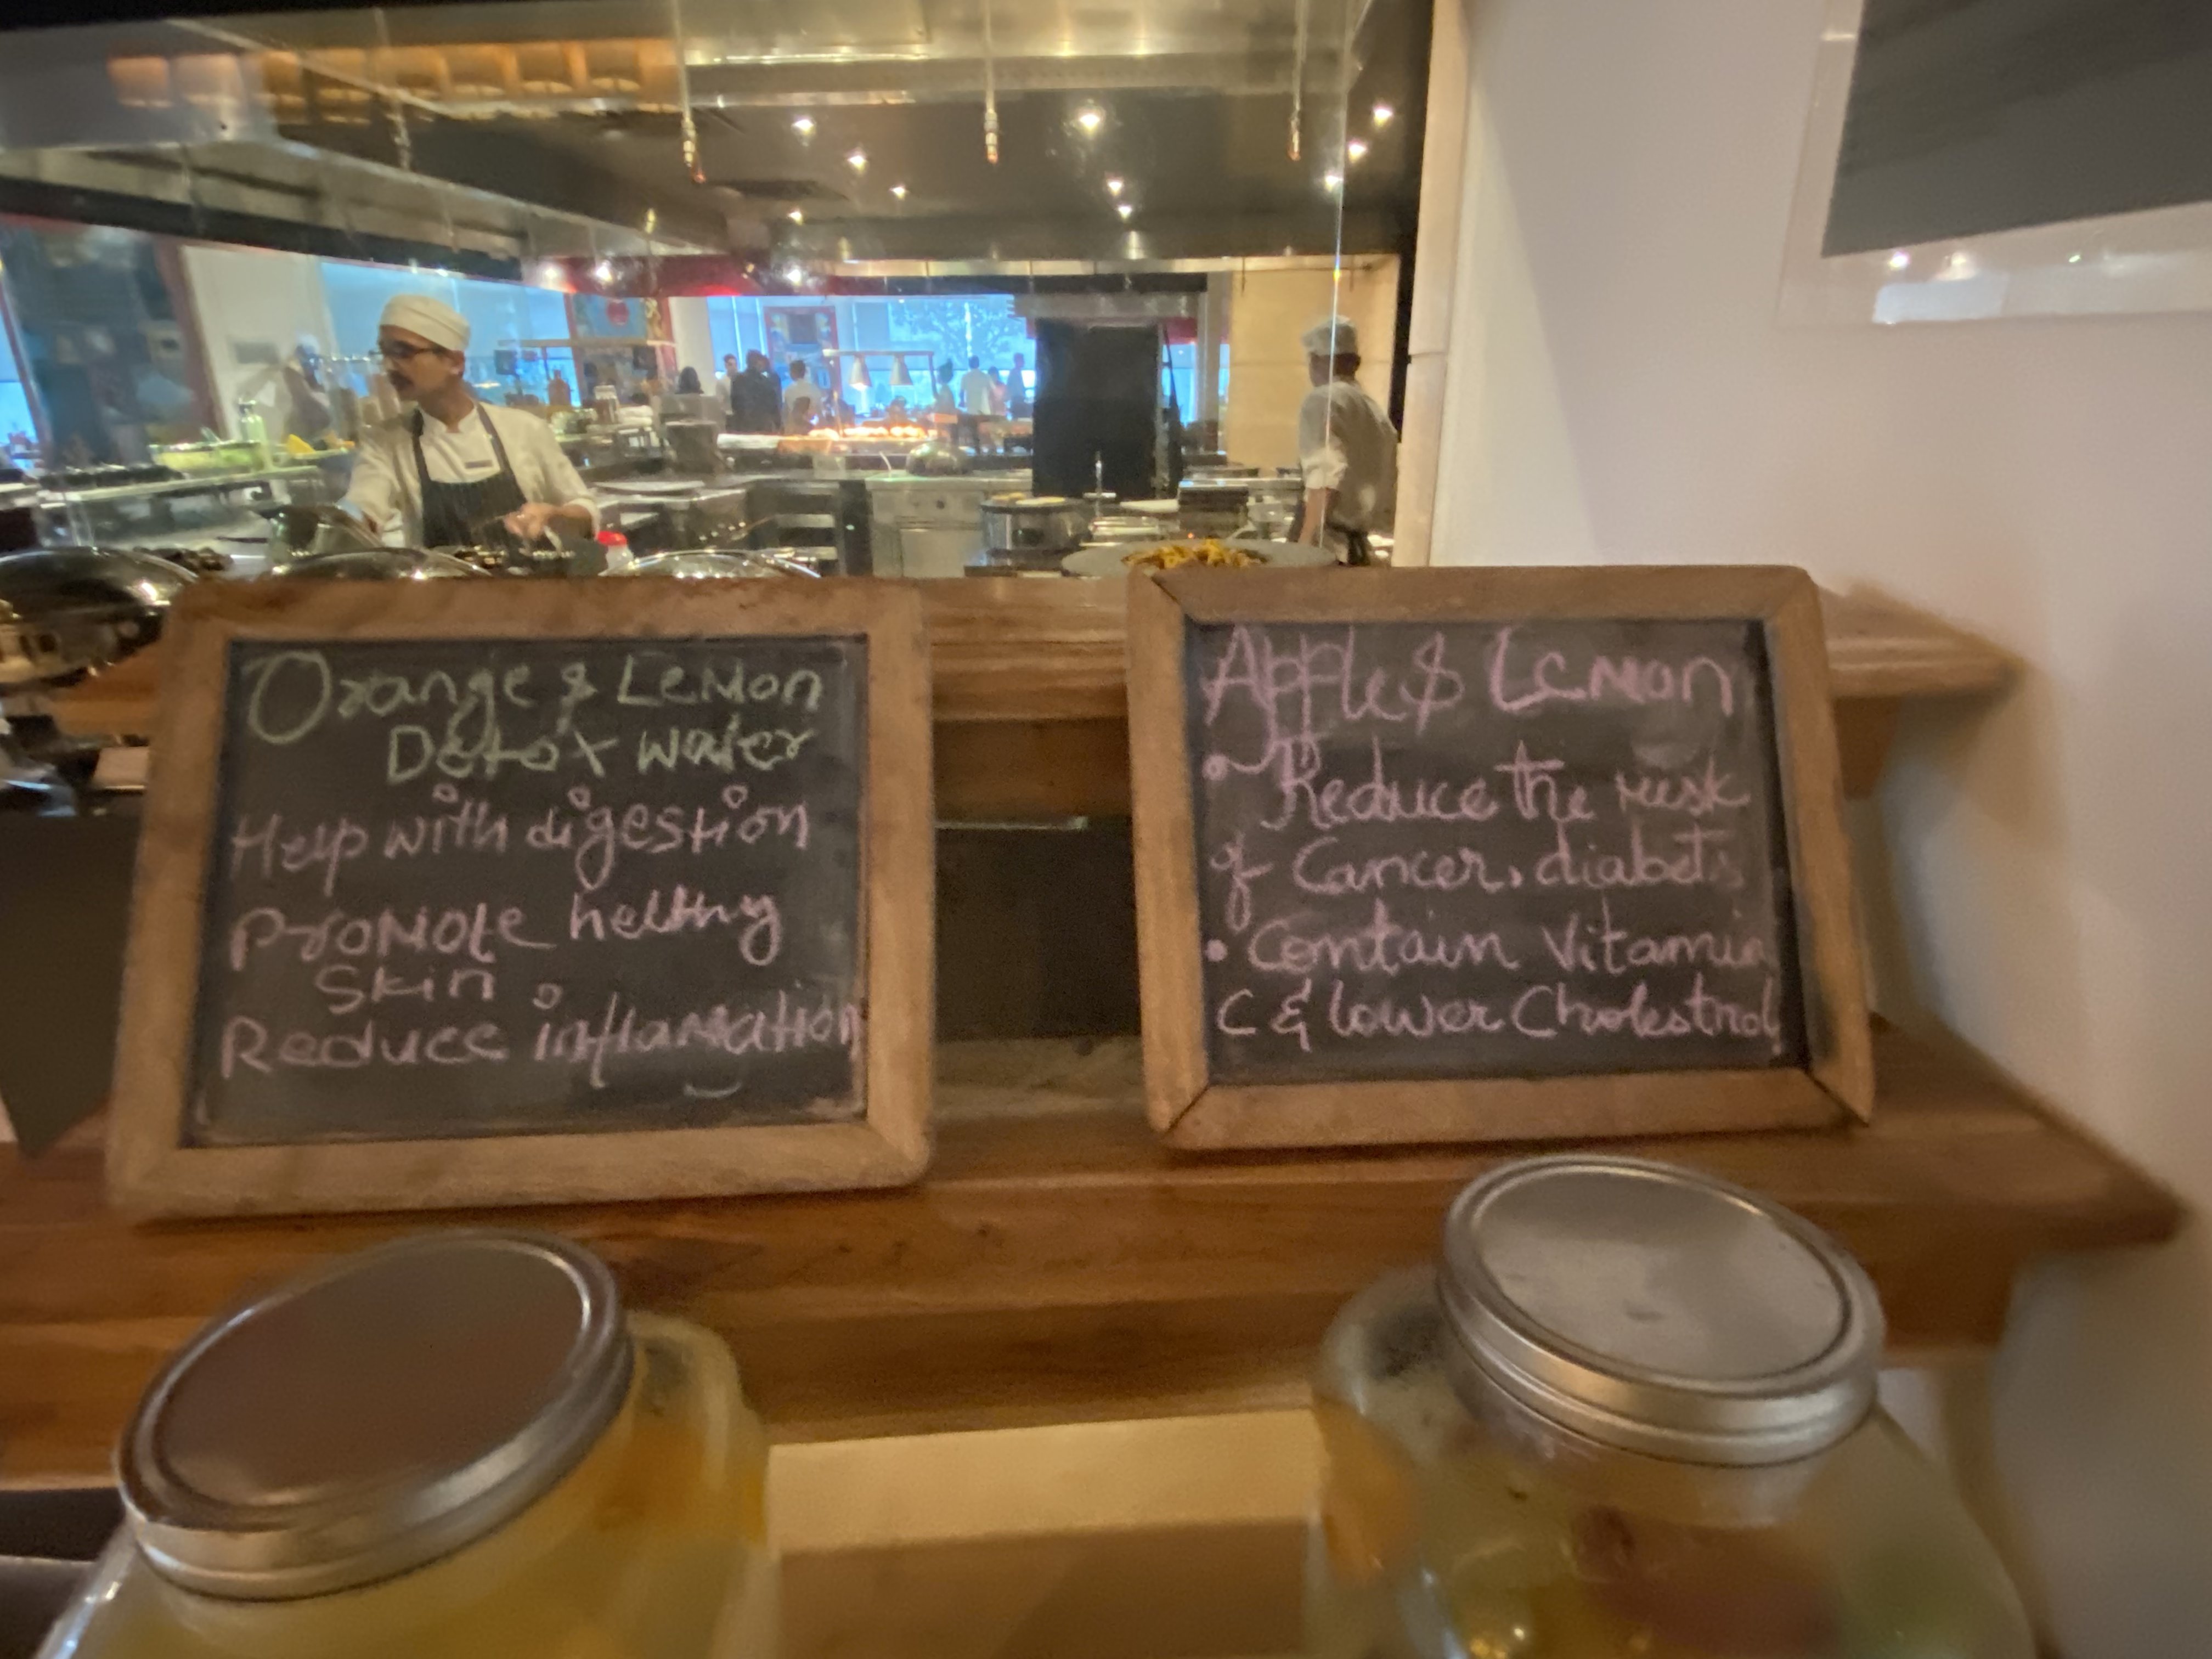 Orange & Lemon
Detox water
Help with digestion
Promote helthy
Skin
Reduce inflamation
Apple & Lemon
• Reduce the risk
of Cancer, diabetis
• Contain Vitamin
C & lower Cholestrol